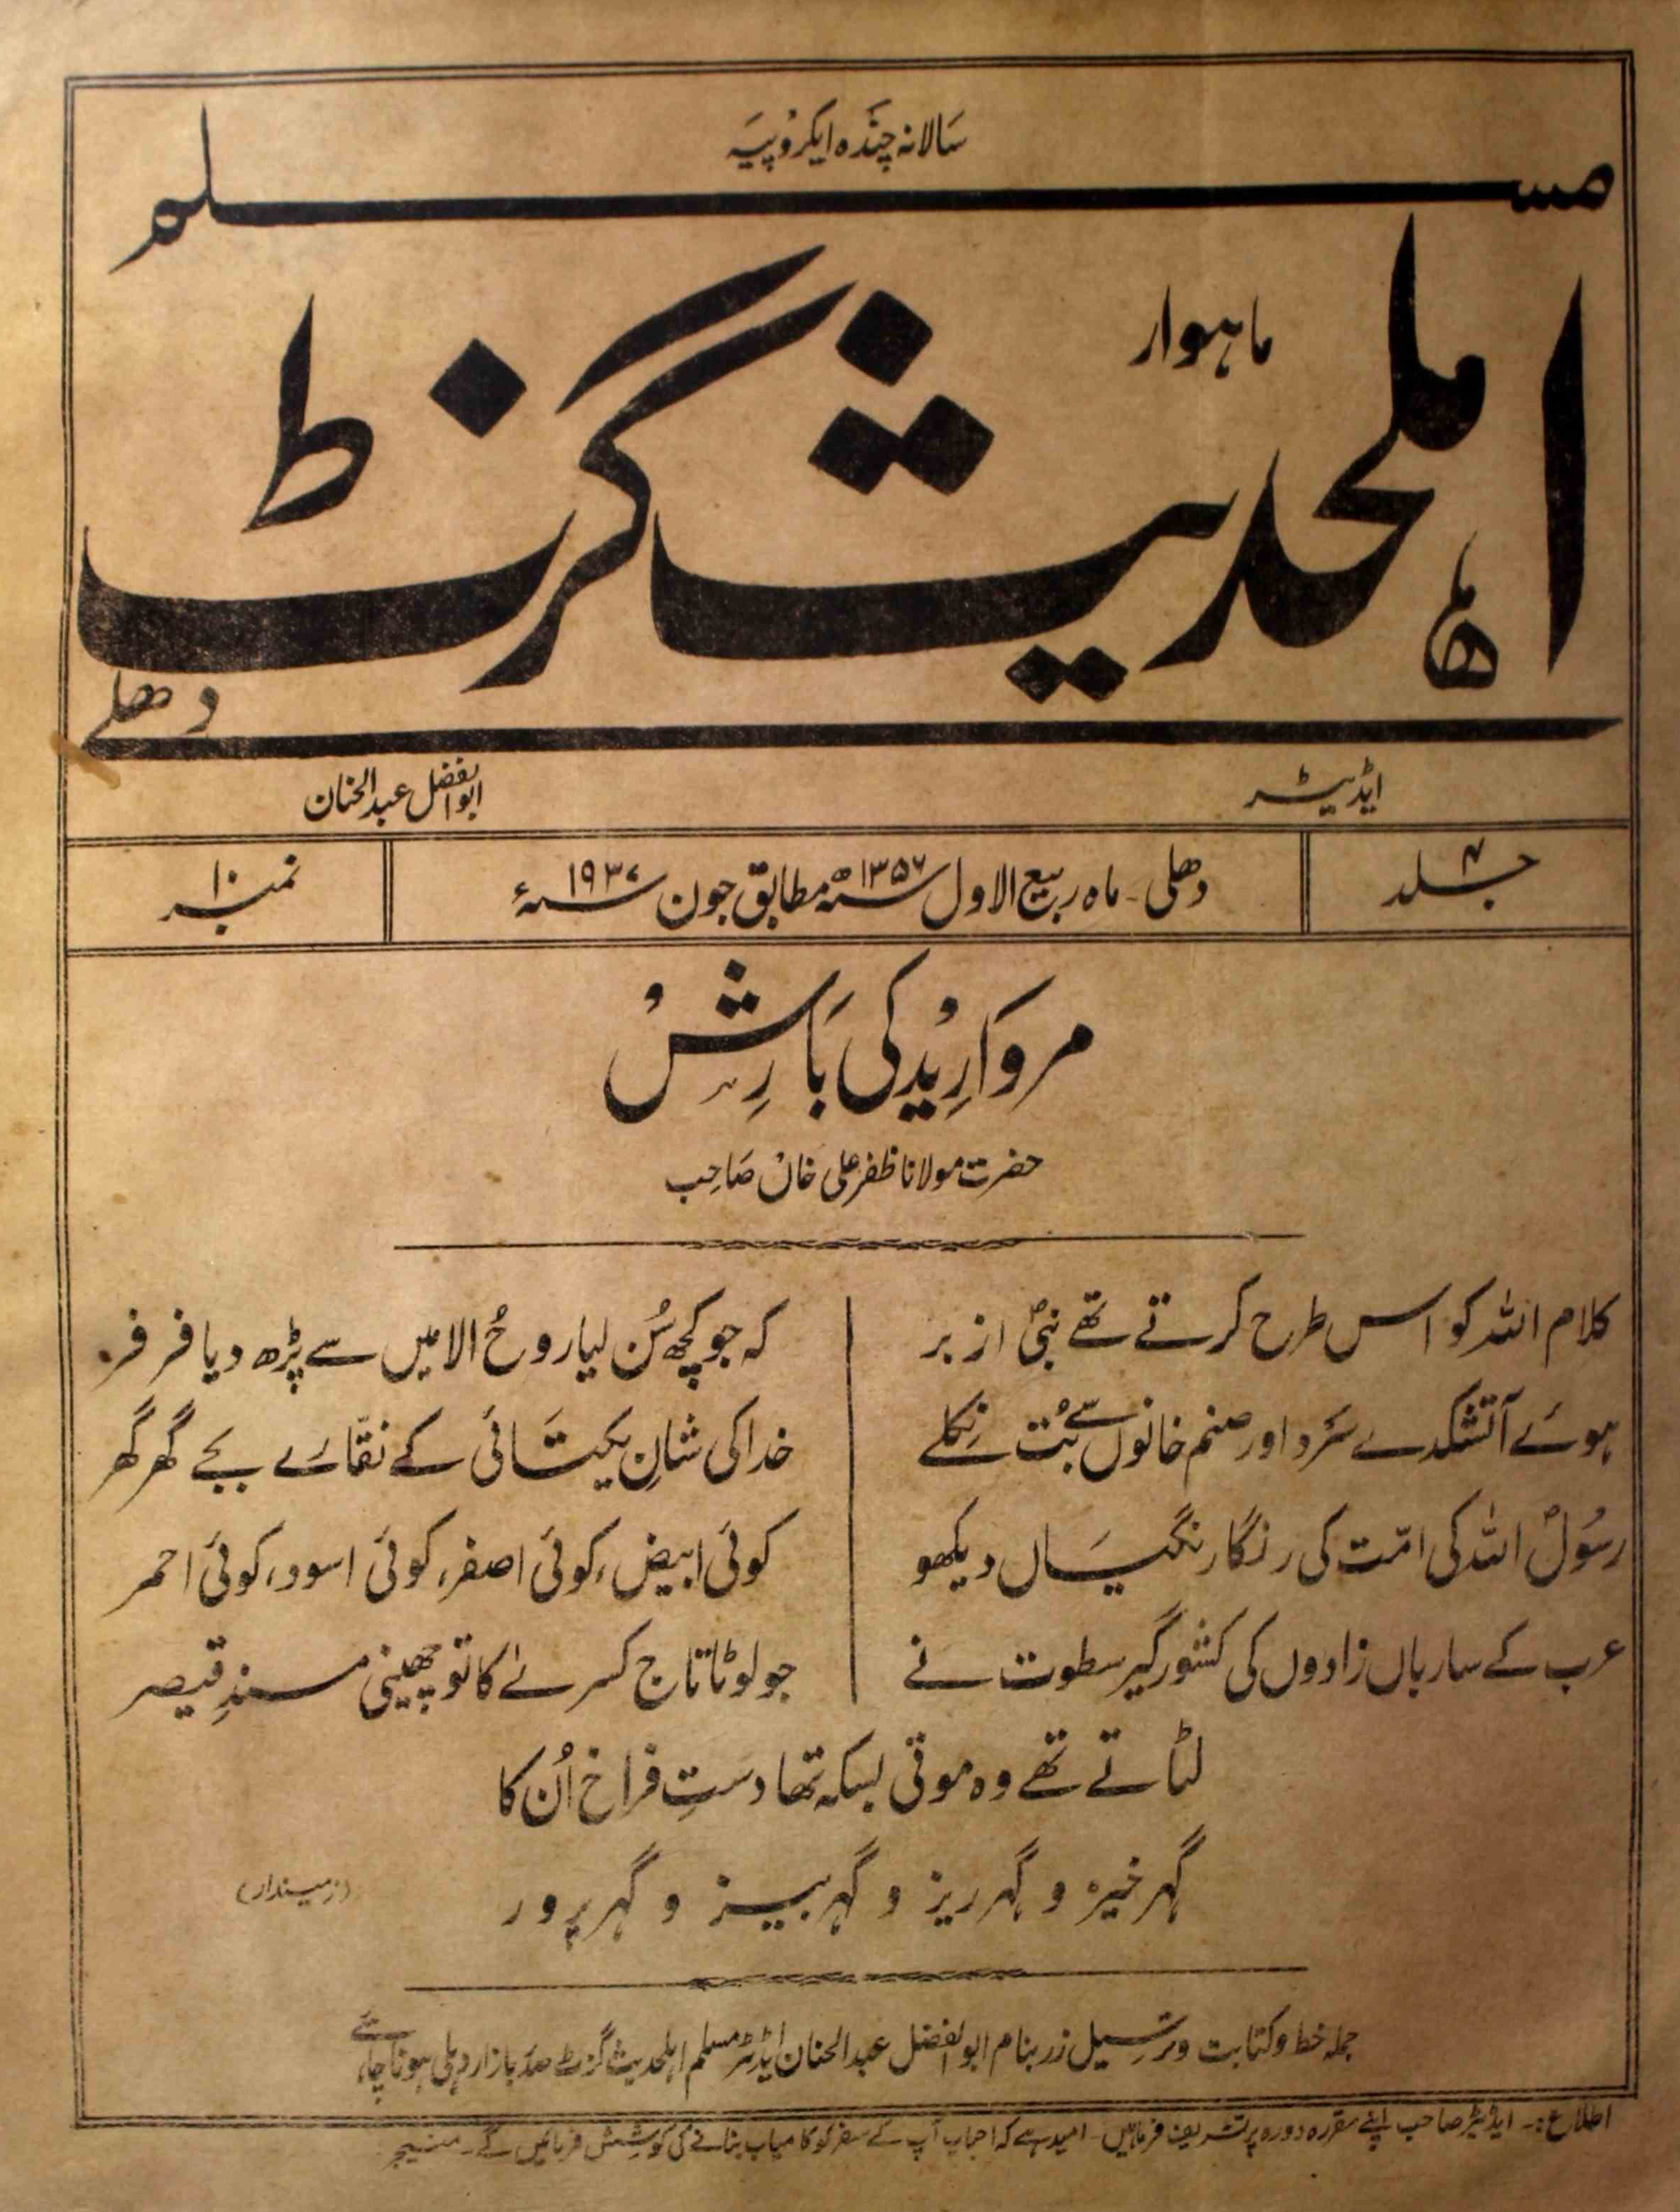 سالانہ چندہ ایکروپیہ
مسلم
ماہوار
اہلحدیث گزٹ
دھلی
ایڈیٹر ابوالفضل عبدالحنان
جلد ۴ دھلی۔ ماہ ربیع الاول سنہ ۱۳۵۶ھ مطابق جون سنہ ۱۹۳۷ء نمبر ۱۰
مروارید کی بارش
حضرت مولانا ظفر علی خان صاحب
کلام اللہ کو اس طرح کرتے تھے نبیؐ ازبر کہ جو کچھ سُن لیا روحُ الامیں سے پڑھ دیا فر فر
ہوئے آتشکدے سرد اور صنم خانوں سے بُت نکلے خدا کی شانِ یکتائی کے نقّارے بجے گھر گھر
رسُولؐ اللہ کی امّت کی رنگا رنگیاں دیکھو کوئی ابیض، کوئی اصفر، کوئی اسود، کوئی احمر
عرب کے سارباں زادوں کی کشور گیر سطوت نے جو لوٹا تاج کسریٰ کا تو چھینی مسندِ قیصر
لٹاتے تھے وہ موتی بسکہ تھا دستِ فراخ اُن کا
گہر خیز و گہر ریز و گہر بیز و گہر پرور
(زمیندار)
جملہ خط و کتابت و ترسیل زر بنام ابوالفضل عبدالحنان ایڈیٹر مسلم اہلحدیث گزٹ صدر بازار دہلی ہونا چاہئے
اطلاع:۔ ایڈیٹر صاحب اپنے مقررہ دورہ پر تشریف فرما ہیں۔ امید ہے کہ احباب آپ کے سفر کو کامیاب بنانے کی کوشش فرمائیں گے۔ منیجر